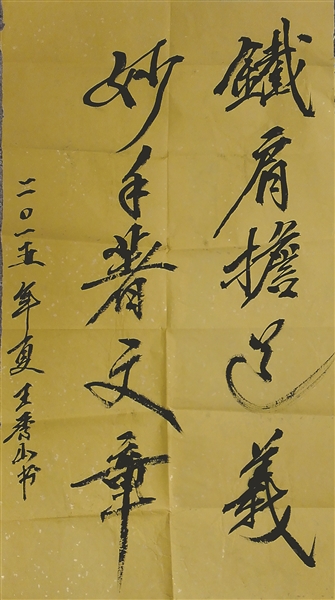 鐵肩擔道義
妙手著文章
二〇一五年夏王秀山书